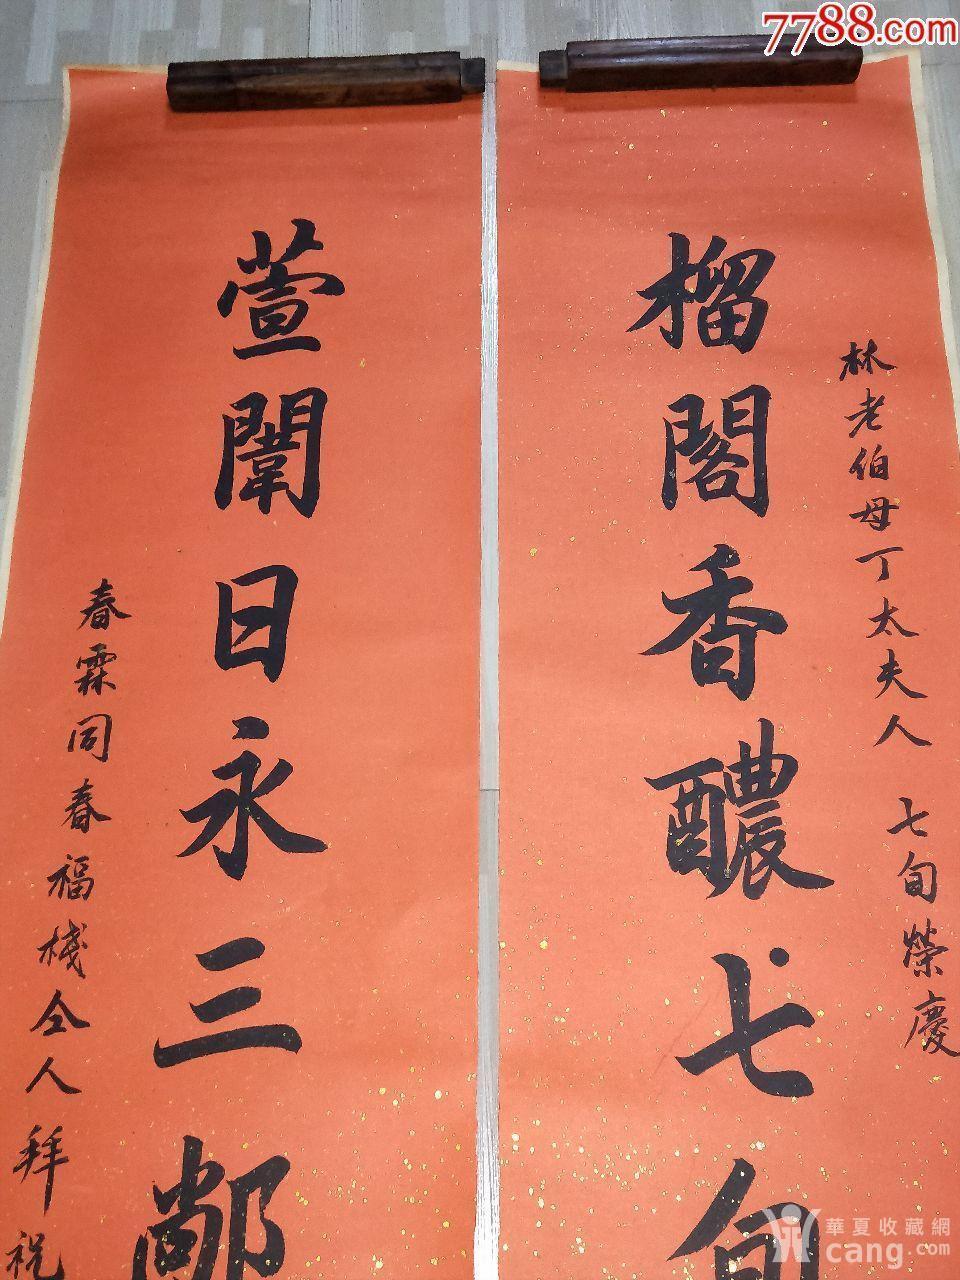 7788.com
林老伯母丁太夫人 七旬荣慶
榴閣香醲七旬
萱闈日永三
春霖同春福棧仝人拜祝
華夏收藏網
cang.com